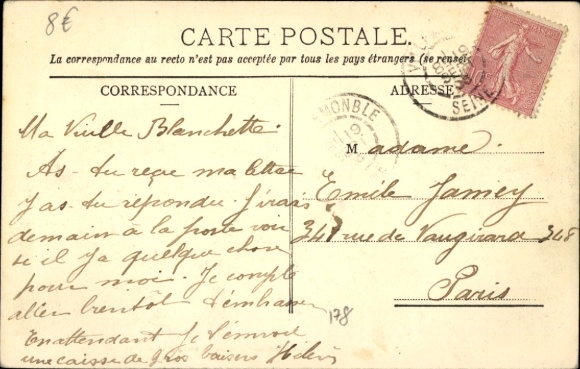 8€
CARTE POSTALE.
La correspondance au recto n'est pas acceptée par tous les pays étrangers (se rensei
CORRESPONDANCE
ADRESSE
SEINE
Ma Vieille Blanchette.
As-tu reçue ma lettre
y as-tu répondu. J'irais
demain à la poste voir
si il y a quelque chose
pour moi. Je compte
aller bientôt t'embrasser
En attendant Je t'envoie
une caisse de gros baisers Hélène
178
Madame
Emile Jamey
348 rue de Vaugirard 348
Paris